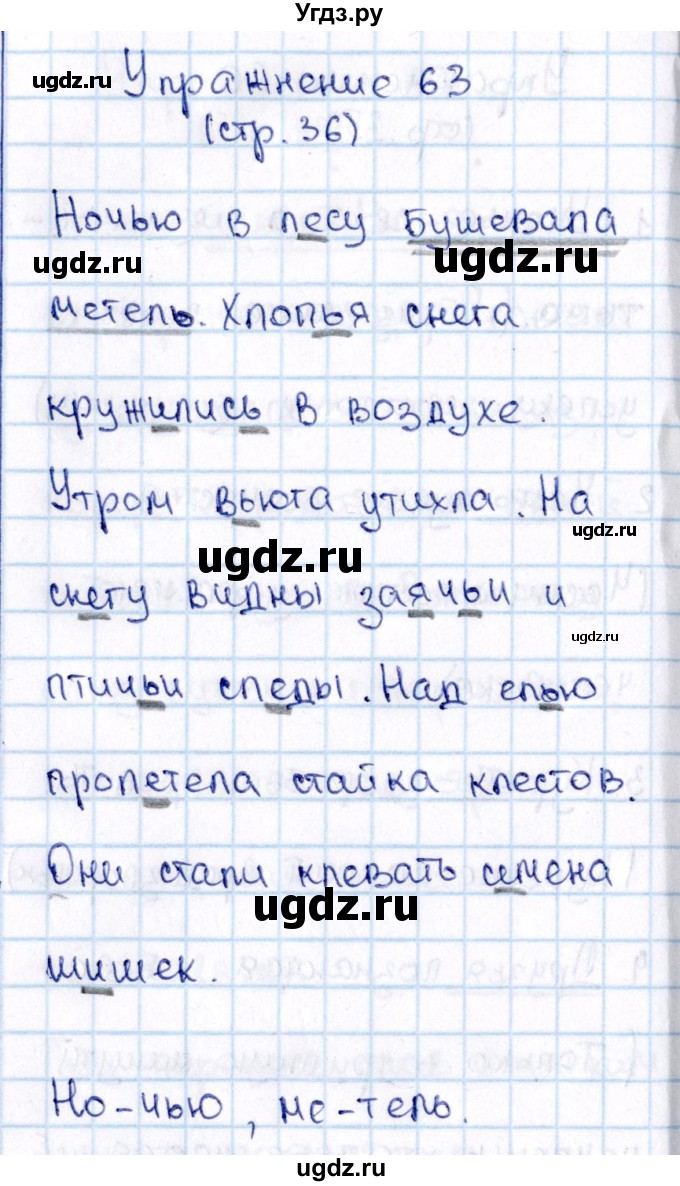 Угдз.ру
ugdz.ru Упражнение 63
(стр. 36)
Ночью в лесу бушевала
ugdz.ru ugdz.ru
метель. Хлопья снега
кружились в воздухе.
Утром вьюга утихла. На
ugdz.ru
ugdz.ru
снегу видны заячьи и
ugdz.ru
птичьи следы. Над елью
пролетела стайка клестов.
Они стали клевать семена
ugdz.ru
шишек.
Но-чью, ме-тель.
ugdz.ru
ugdz.ru